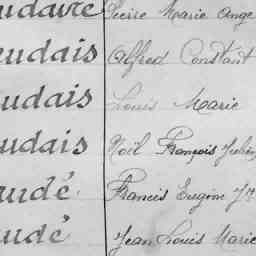 udaire Pierre Marie Ange
eudais Alfred Constant
udais Louis Marie
udais Noël François Julien
udé Francis Eugène
udé Jean Louis Marie